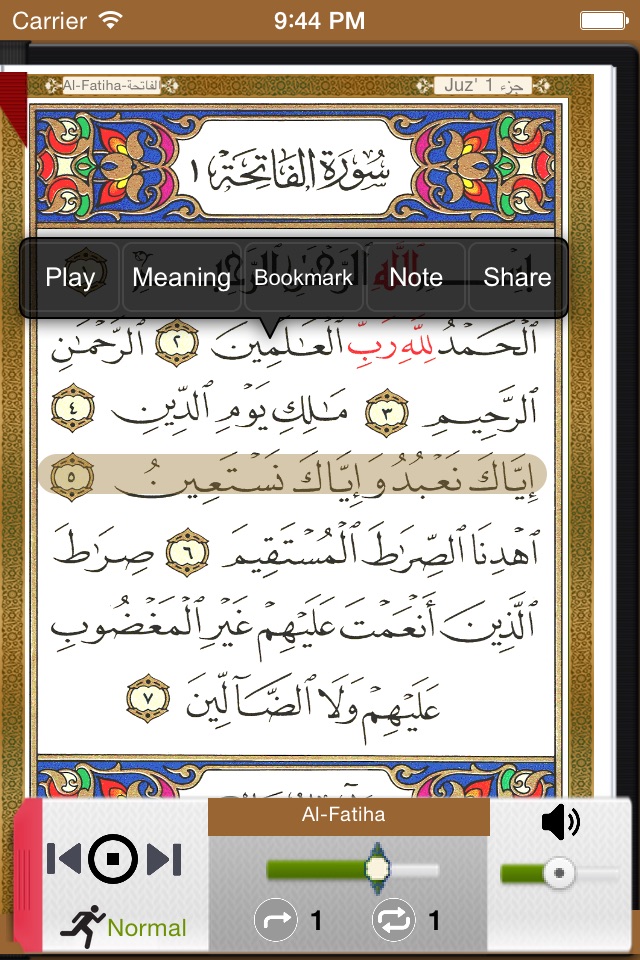 Carrier 9:44 PM
Al-Fatiha-الفاتحة
Juz' 1 جزء
سُورَةُ الفَاتِحَةِ ١
Play Meaning Bookmark Note Share
ٱلْحَمْدُ لِلَّهِ رَبِّ ٱلْعَٰلَمِينَ ٢ ٱلرَّحْمَٰنِ
ٱلرَّحِيمِ ٣ مَٰلِكِ يَوْمِ ٱلدِّينِ ٤
إِيَّاكَ نَعْبُدُ وَإِيَّاكَ نَسْتَعِينُ ٥
ٱهْدِنَا ٱلصِّرَٰطَ ٱلْمُسْتَقِيمَ ٦ صِرَٰطَ
ٱلَّذِينَ أَنْعَمْتَ عَلَيْهِمْ غَيْرِ ٱلْمَغْضُوبِ
عَلَيْهِمْ وَلَا ٱلضَّآلِّينَ ٧
Al-Fatiha
Normal
1 1